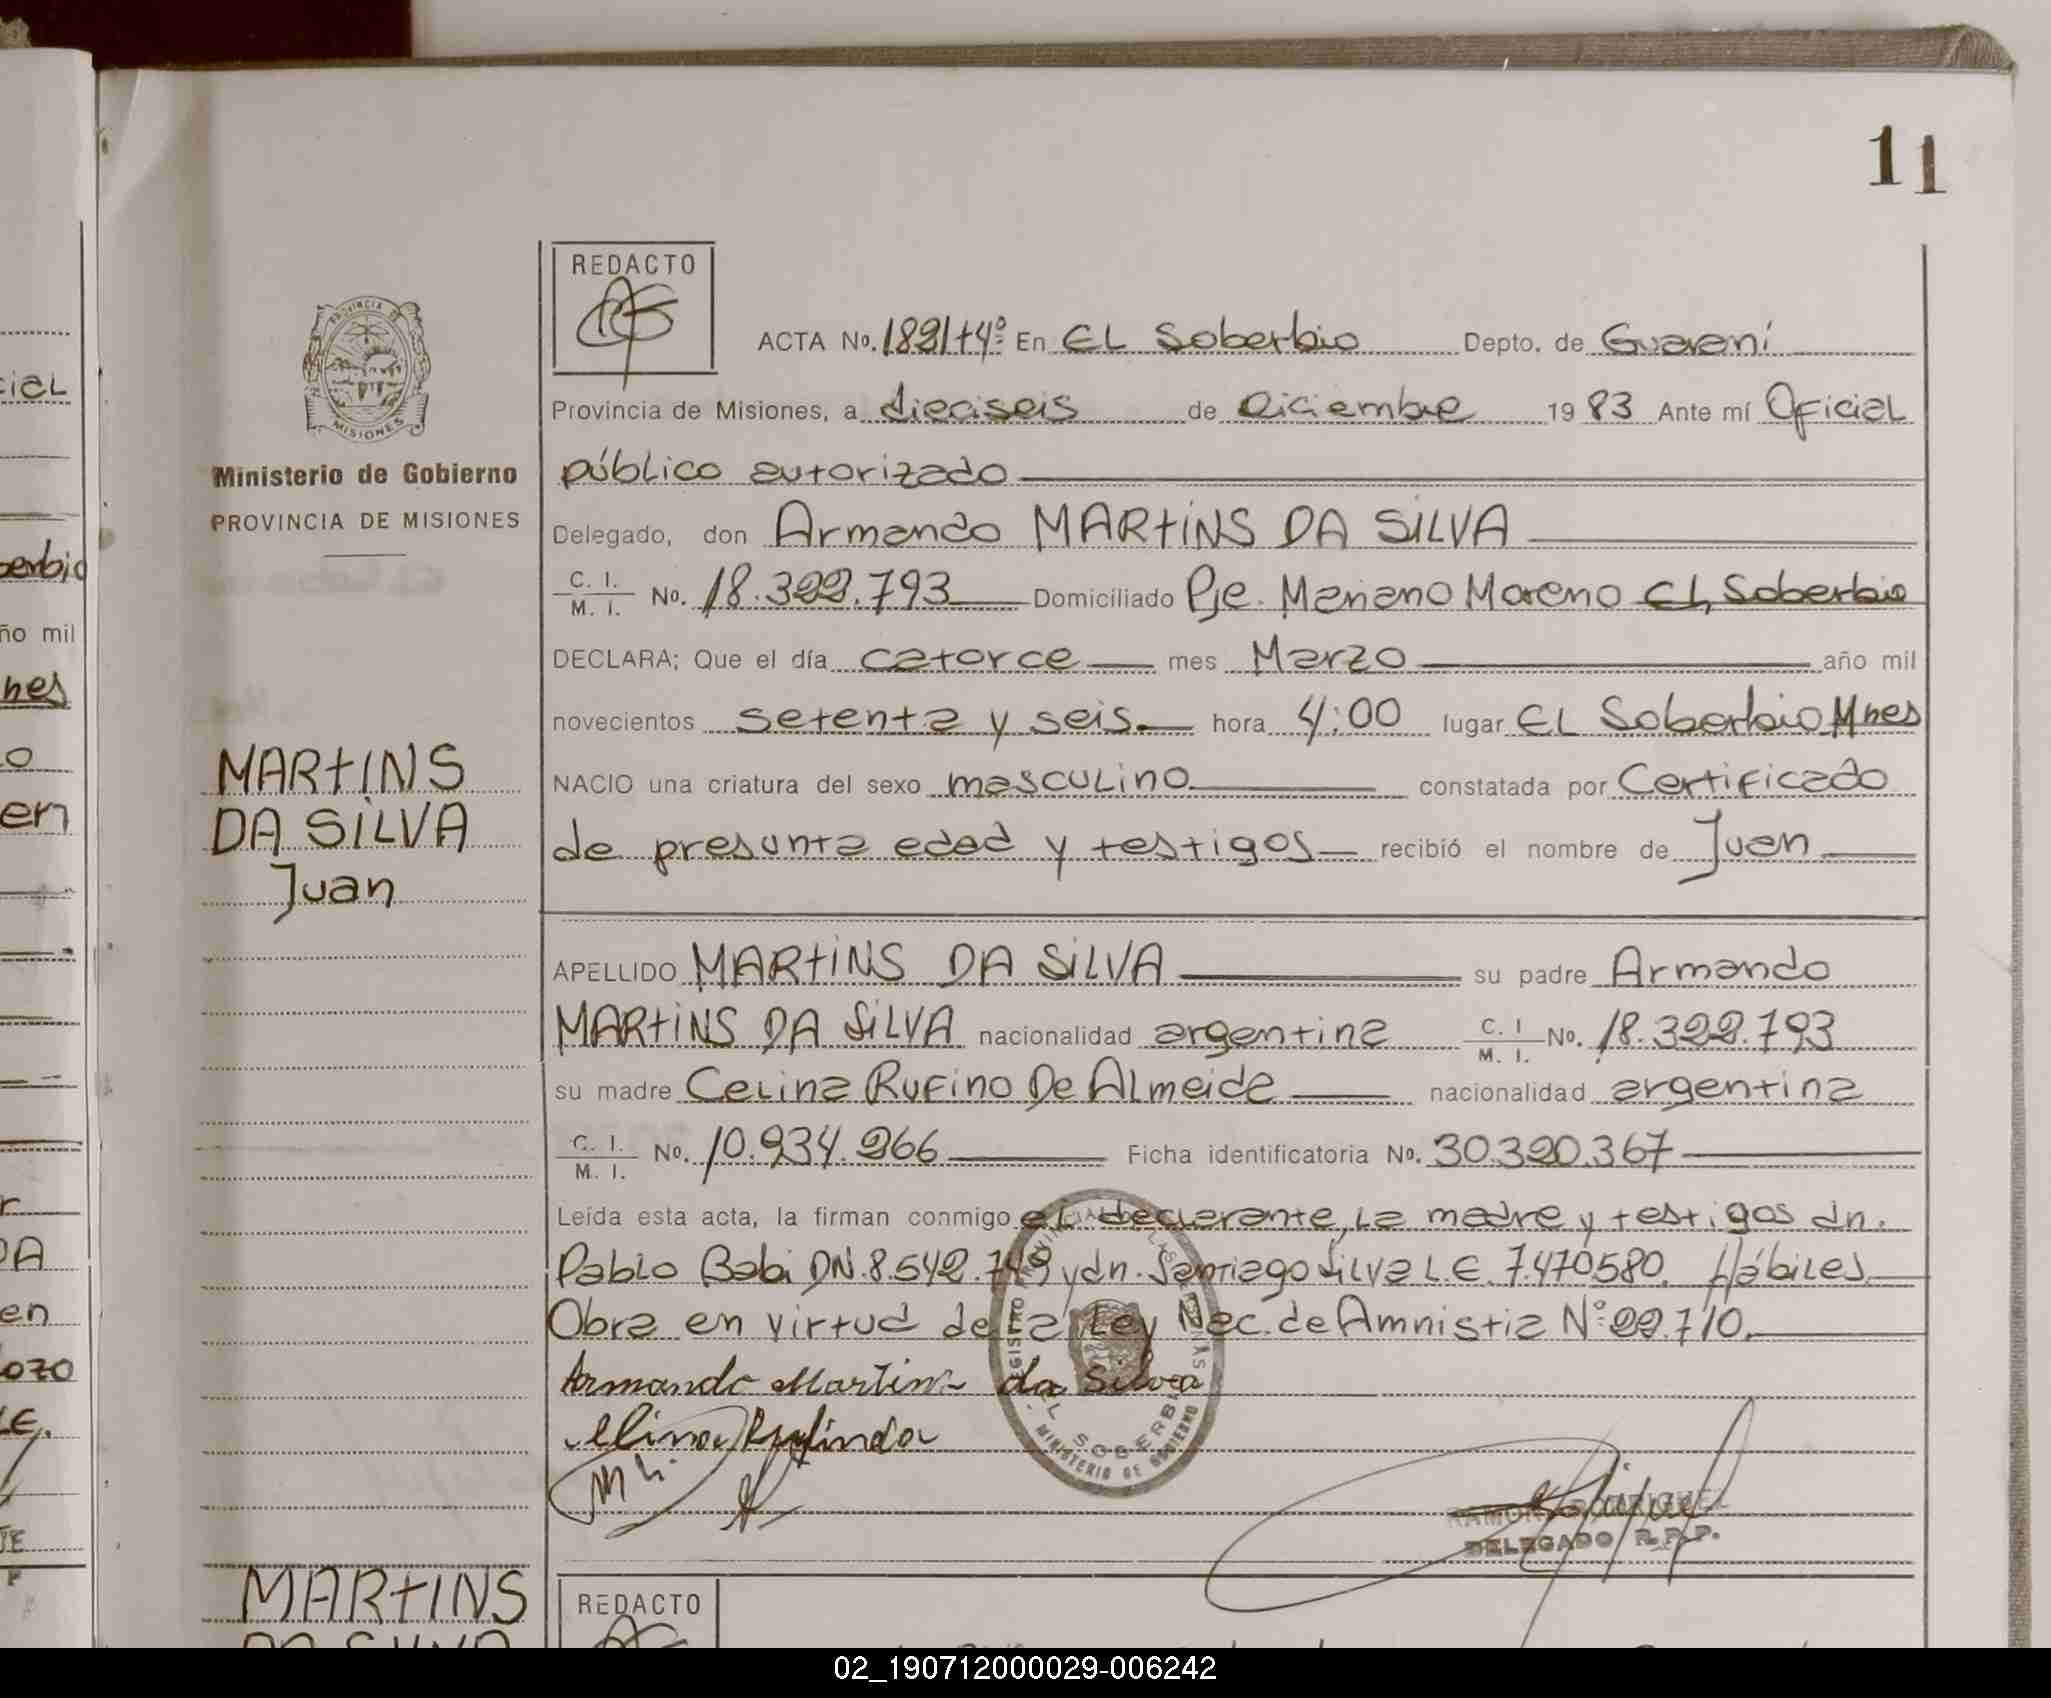 11
REDACTO
ACTA No. 1891 t4º En EL Soberbio Depto. de Guaraní
Provincia de Misiones, a dieciseis de Diciembre 19 83 Ante mí Oficial
público autorizado
Delegado, don Armando MARTINS DA SILVA
C. I. / M. I. No. 18.322.793 Domiciliado Pje. Mariano Moreno EL Soberbio
DECLARA; Que el día catorce mes Marzo año mil
novecientos setenta y seis hora 4:00 lugar EL Soberbio Mnes
NACIO una criatura del sexo masculino constatada por Certificado
de presunta edad y testigos recibió el nombre de Juan
APELLIDO MARTINS DA SILVA su padre Armando
MARTINS DA SILVA nacionalidad argentina C. I / M. I. No. 18.322.793
su madre Celina Rufino De Almeida nacionalidad argentina
C. I. / M. I. No. 10.934.266 Ficha identificatoria No. 30.320.367
Leída esta acta, la firman conmigo el declarante, la madre y testigos dn.
Pablo Babi DN. 8.542.749 y dn. Santiago Silva L E. 7.470580. Hábiles
Obra en virtud de la Ley Nac. de Amnistia Nº 22.710.
Armando Martins da Silva
DELEGADO R.P.P.
MINISTERIO DE GOBIERNO
PROVINCIA DE
MISIONES
Ministerio de Gobierno
PROVINCIA DE MISIONES
MARTINS
DA SILVA
Juan
MARTINS
REDACTO
cial
ño mil
nes
en
DA
en
LE.
02_190712000029-006242